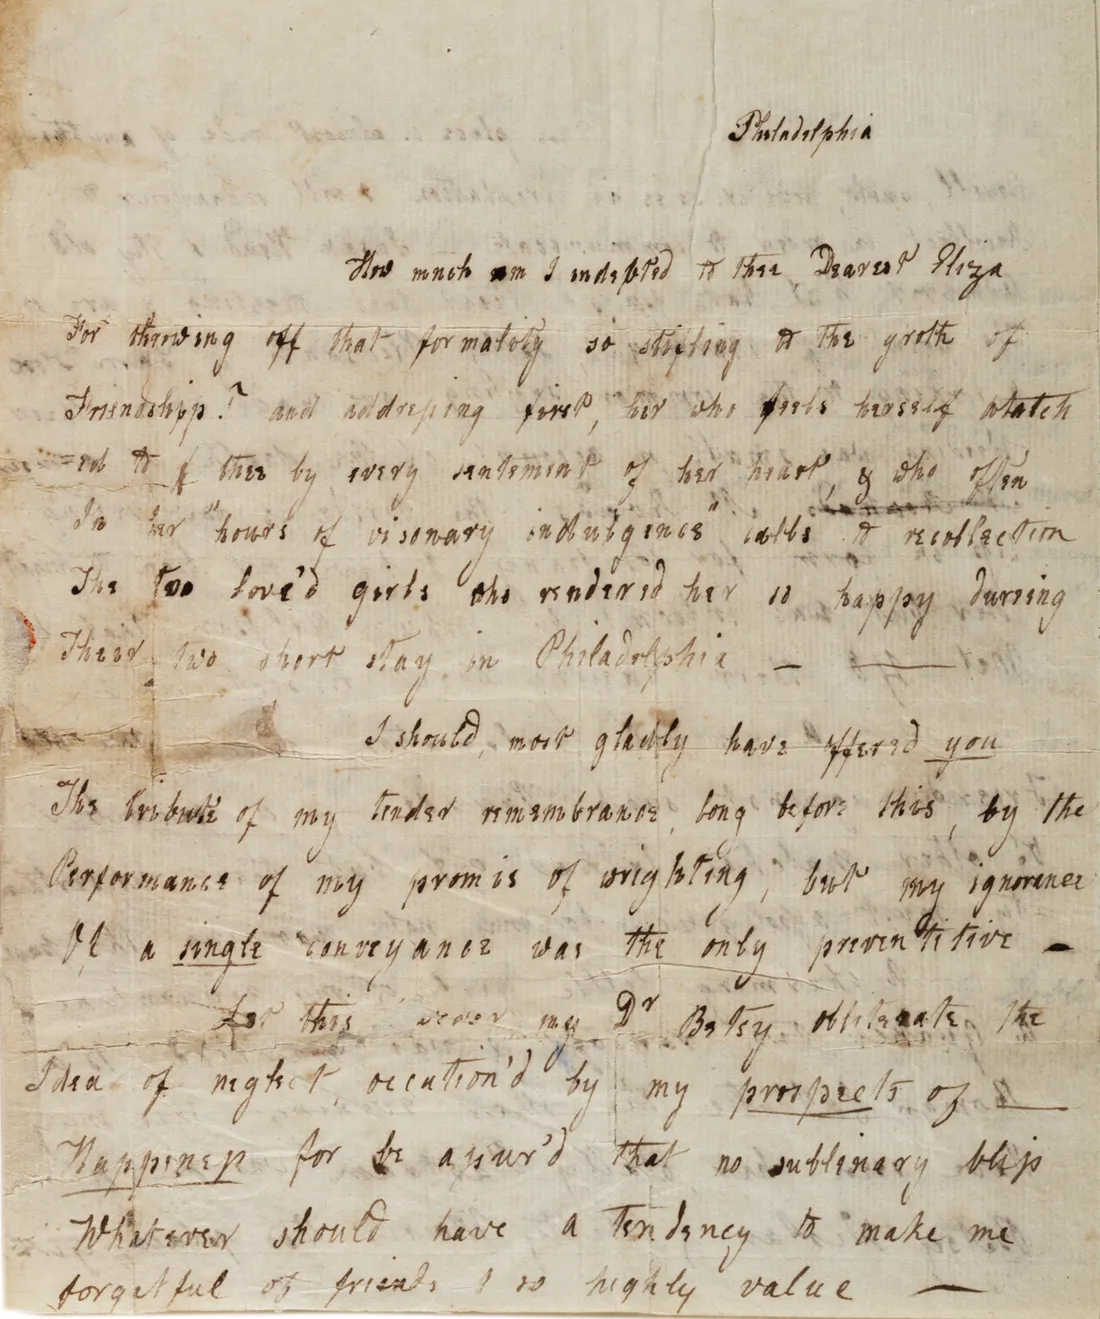 Philadelphia
How much am I indepted to thee, Dearest Eliza
For throwing off that formality so stifling to the groth of
Friendshipp? and addressing first, her who feels herself attatch
=ed to thee by every sentement of her heart, & who often
In her "hours of visionary indulgence" calls to recollection
The two love'd girls who rendered her so happy durring
Their two short stay in Philadelphia — —
I should, most gladly have offered you
The tribute of my tender remembrance, long before this, by the
Performance of my promis of wrighting, but my ignorance
Of a single conveyance was the only preventitive —
Let this my Dr Betsy obliterate the
Idea of neglect, occation'd by my prospects of —
Happiness for be assur'd that no sublinary bliss
Whatever should have a tendency to make me
forgetful of friends I so highly value —